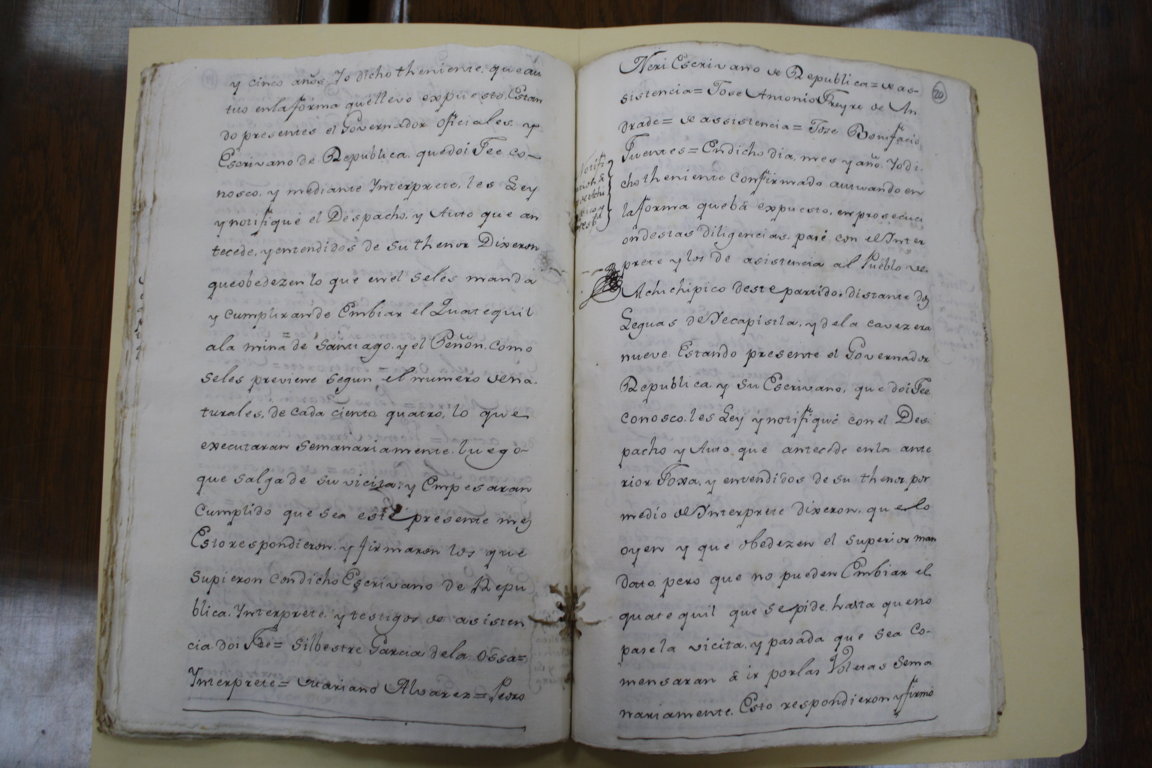 y cinco años. Yo dicho theniente, que au
tuo en la forma que llevo expuesto, Estan
do presentes el Governador oficiales y
Escrivano de Republica, que doi Fee co-
nosco, y mediante Ynterprete, les Ley
y notifiqué el Despacho, y Auto que an
tecede, y entendidos de su thenor Dixeron
que obedezen lo que en el seles manda
y cumpliran de Embiar el Quatequil
ala mina de Santiago, y el Peñon, como
seles previene segun el numero de na-
turales, de cada ciento quatro, lo que
executaran semanariamente, luego
que salga de su vicita, y Empesaran
cumplido que sea este presente mes
Esto respondieron, y firmaron los que
supieron con dicho Escrivano de Repu
blica, Ynterprete, y testigos de asisten
cia doi Fee= Silbestre Garcia de la Ossa=
Ynterprete= Mariano Alvarez= Pedro
Neri Escrivano de Republica= de as-
sistencia= Jose Antonio Freyre de An
drade= de assistencia= Jose Bonifacio
Fuentes= En dicho dia, mes y año. Yo di-
cho theniente confirmado autuando en
la forma que bá expuesto, en prosecuci
on destas diligencias, paié con el Ynter
prete y los de asistencia al Pueblo de
Achichipico deste partido, distante dos
Leguas de Yecapistla, y dela cavezera
nueve Estando presente el Governador
Republica, y su Escrivano, que doi Fee
conosco, les Ley y notifiqué con el Des-
pacho y Auto que antecede en la ante
rior Foxa, y entendidos de su thenor por
medio del Ynterprete dixeron, que lo
oyen y que obedezen el superior man
dato pero que no pueden Embiar el
quatequil que se pide, hasta que no
pase la vicita, y pasada que sea co-
mensaran á ir por las Voletas sema
nariamente. Esto respondieron y firmó
20